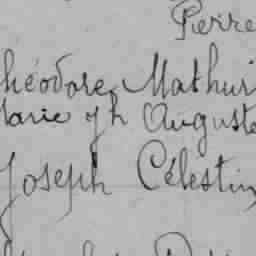 Pierre
héodore Mathuri
arie Jh Auguste
Joseph Célestin